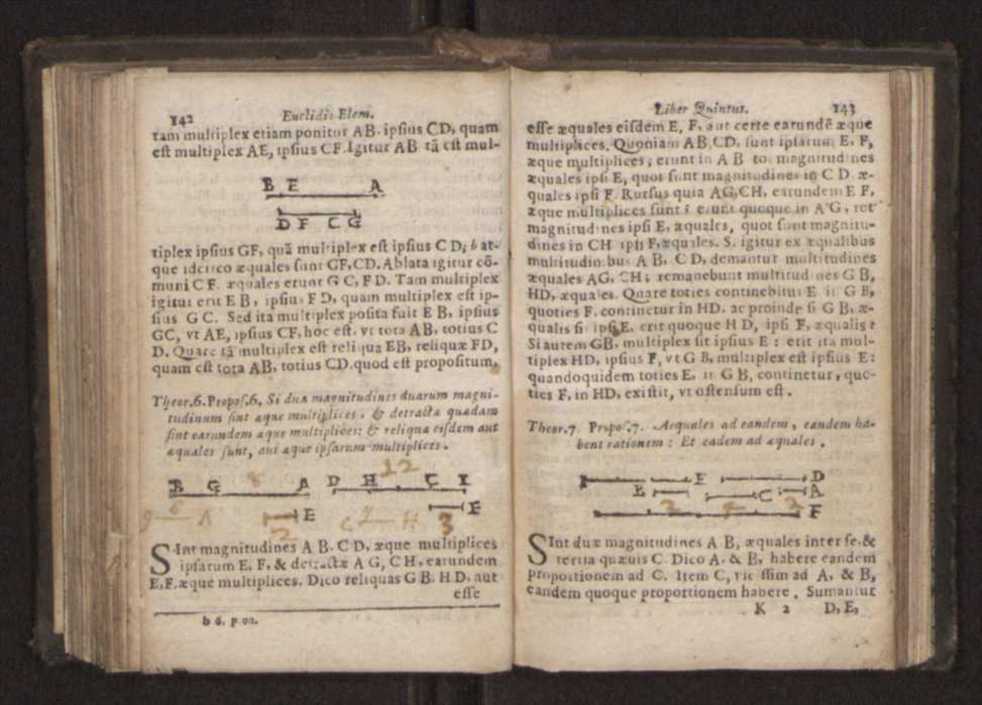 142 Euclidis Elem.
tam multiplex etiam ponitur AB. ipsius CD, quam
est multiplex AE, ipsius CF. Igitur AB tã est mul-
B E A
D F C G
tiplex ipsius GF, quã multiplex est ipsius CD; b at-
que idcirco æquales sunt GF, CD. Ablata igitur cõ-
muni CF. æquales erunt GC, FD. Tam multiplex
igitur erit EB, ipsius FD, quam multiplex est ip-
sius GC. Sed ita multiplex posita fuit EB, ipsius
GC, vt AE, ipsius CF, hoc est, vt tota AB, totius C
D. Quare tã multiplex est reliqua EB, reliquæ FD,
quam est tota AB, totius CD. quod est propositum.
Theor.6. Propos.6. Si duæ magnitudines duarum magni-
tudinum sint æque multiplices, & detractæ quædam
sint earundem æque multiplices: & reliquæ eisdem aut
æquales sunt, aut æque ipsarum multiplices.
B G 8 A D H 12 C I
6 A E 2 H 3 E
SInt magnitudines AB. CD, æque multiplices
ipsarum E, F, & detractæ AG, CH, earundem
E, F. æque multiplices. Dico reliquas GB. HD, aut
esse
b 6. pon.
Liber Quintus. 143
esse æquales eisdem E, F, aut certe earundẽ æque
multiplices. Quoniam AB, CD, sunt ipsarum E, F,
æque multiplices; erunt in AB tot magnitudines
æquales ipsi E, quot sunt magnitudines in CD. æ-
quales ipsi F. Rursus quia AG, CH, earundem E F,
æque multiplices sunt; erunt quoque in AG, tot
magnitudines ipsi E, æquales, quot sunt magnitu-
dines in CH ipsi F, æquales. Si igitur ex æqualibus
multitudinibus AB, CD, demantur multitudines
æquales AG, CH; remanebunt multitudines GB,
HD, æquales. Quare toties continebitur E in GB,
quoties F. continetur in HD. ac proinde si GB, æ-
qualis sit ipsi E, erit quoque HD, ipsi F, æqualis:
Si autem GB, multiplex sit ipsius E: erit ita mul-
tiplex HD, ipsius F, vt GB, multiplex est ipsius E:
quandoquidem toties E, in GB, continetur, quo-
ties F, in HD, existit, vt ostensum est.
Theor.7. Propos.7. Aequales ad eandem, eandem ha-
bent rationem: Et eadem ad æquales.
E D
B C A
2 3
F
SInt duæ magnitudines A B, æquales inter se, &
tertia quæuis C. Dico A, & B, habere eandem
proportionem ad C. Item C, vicissim ad A, & B,
eandem quoque proportionem habere. Sumantur
K 2 D, E,